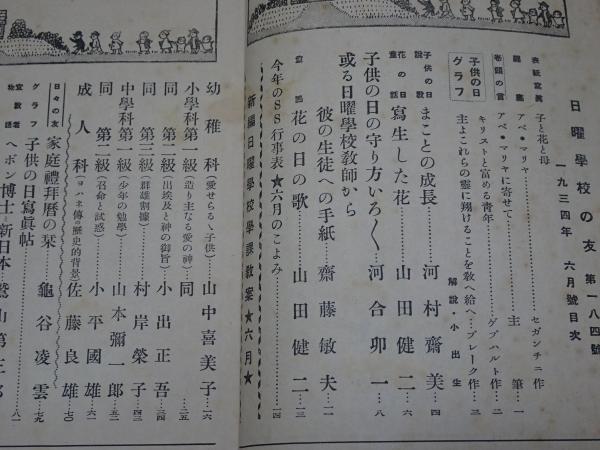 日曜學校の友 第一八四號
一九三四年 六月號目次
表紙寫眞 子と花と母……セガンチニ作
題畫 アベ・マリヤ
卷頭の言 アベ・マリヤに寄せて……主筆…一
キリストと富める靑年……ゲブハルト作…二
子供の日グラフ 主よこれらの靈に翔けることを敎へ給へ…ブレーク作…三
解說・小出生
子供の日說敎 まことの成長……河村齋美…四
花の日童話 寫生した花……山田健二…六
子供の日の守り方いろ〳〵……河合卯一…八
或る日曜學校敎師から
彼の生徒への手紙……齋藤敏夫…二
童謠 花の日の歌……山田健二…一三
今年のSS行事表★六月のこよみ……一四
新編日曜學校學課敎案★六月★
幼稚科(愛せらるゝ子供)……山中喜美子…一六
小學科第一級(造り主なる愛の神)…同……二五
同 第二級(出埃及と神の御旨)…小出正吾…三四
同 第三級(群雄割據)……村岸榮子…四三
中學科第一級(少年の勉學)……山本彌一郞…五二
同 第二級(召命と試惑)……小平國雄…六一
成人科(ヨハネ傳の歷史的背景)…佐藤良雄…七〇
日々の友 家庭禮拜曆の栞……龜谷凌雲…七九
グラフ 子供の日寫眞帖
宣敎者物語 ヘボン博士と新日本…鷲山第三郞…八一